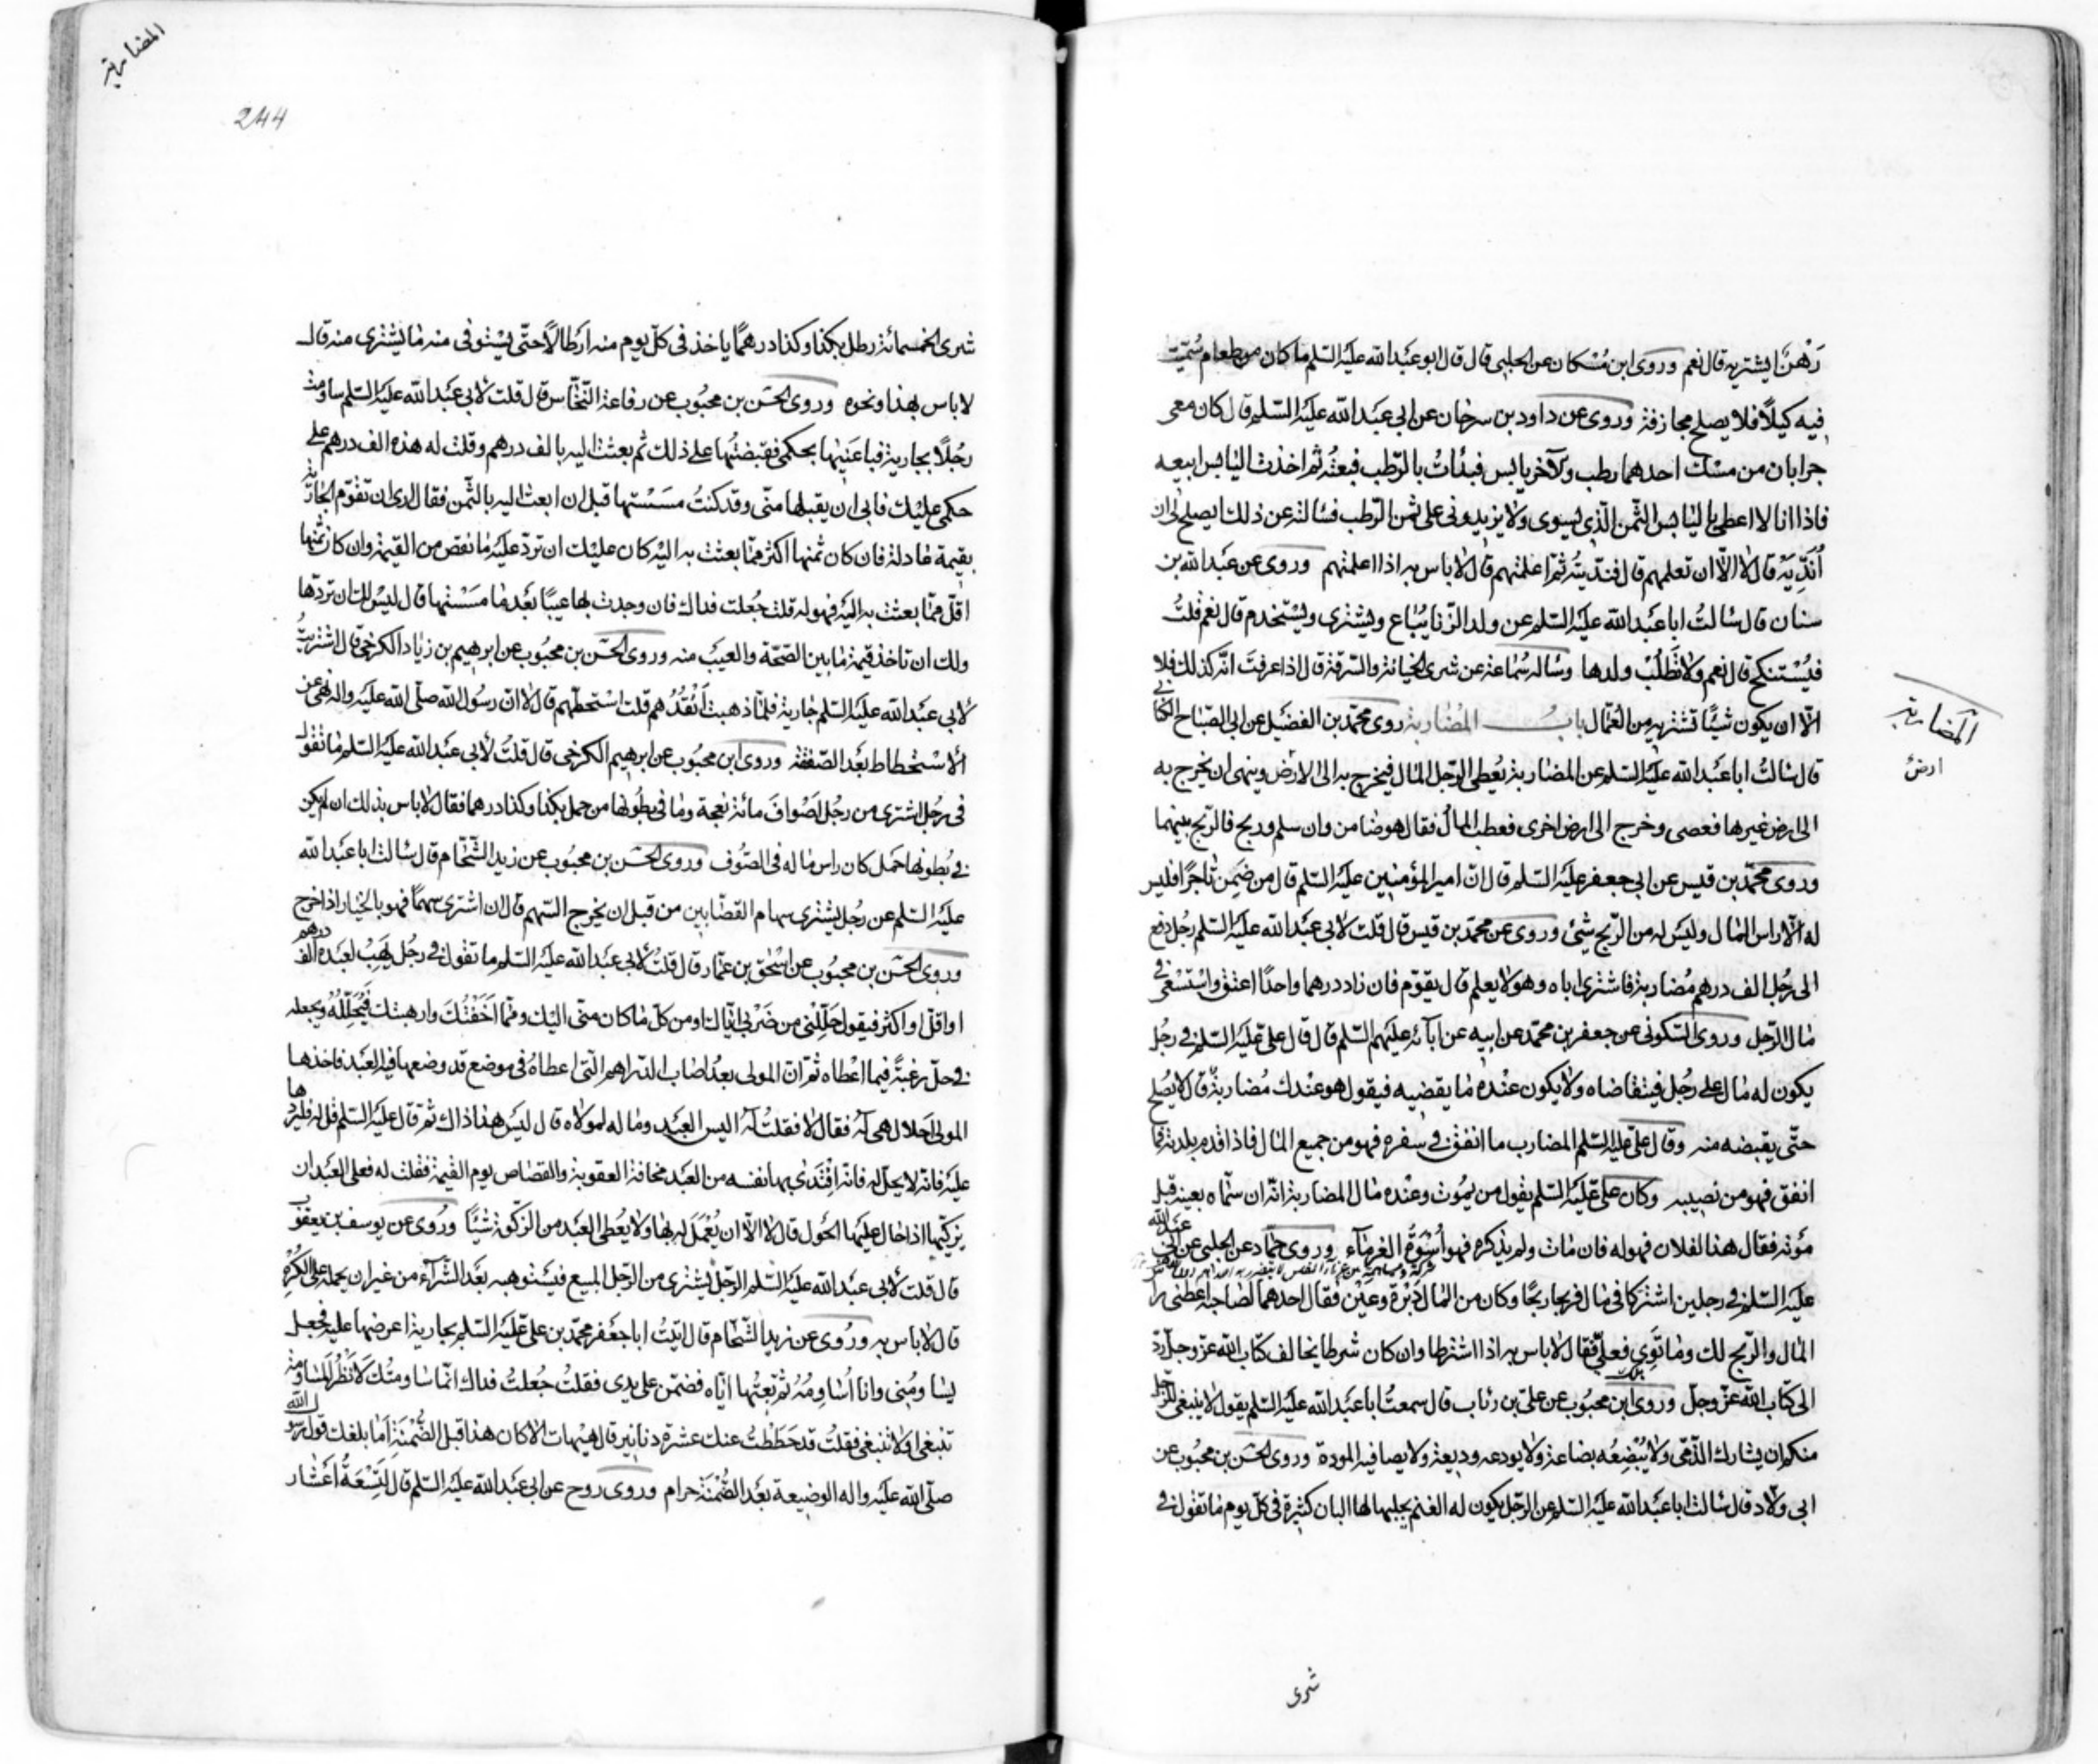 رَهْن ايشتريه قال نعم وروى ابن مُسْكان عن الحلبي قال قال ابو عبد الله عليه السّلم ما كان من طعام سُمّيت
فيه كيلاً فلا يصلح مجازفة وروى عن داود بن سرحان عن ابي عبد الله عليه السّلم قال كان معى
جرابان من مسك احدهما رطب والآخر يابس فبدأتُ بالرّطب فبعتُه ثم اخذت اليابس ابيعه
فاذا انا لا اعطى باليابس الثّمن الّذي يسوى ولا يزيدونى على ثمن الرّطب فسالته عن ذلك ايصلح لى ان
اُنَدِّيَهُ قال لا الّا ان تعلمهم قال فندّيته ثمّ اعلمتهم قال لا باس به اذا اعلمتهم وروى عن عبد الله بن
سنان قال سالتُ ابا عبد الله عليه السّلم عن ولد الزّنا يُباع ويشترى ويستخدم قال نعم قلتُ
فيُسْتنكح قال نعم ولا تَطلُبْ ولدها وساله سُماعة عن شرى الخيانة والسّرقة قال اذا عرفتَ انّه كذلك فلا
الّا ان يكون شيئًا تشتريه من العُمّال بابُ المُضاربة روى محمّد بن الفضيل عن ابي الصّباح الكنانى
قال سالتُ ابا عبد الله عليه السّلم عن المضاربة يُعطى الرّجل المال فيخرج به الى الارض وينهى ان يخرج به
الى ارض غيرها فعصى وخرج الى ارض اخرى فعطب المالُ فقال هو ضامن وان سلم وربح فالربح بينهما
وروى محمّد بن قيس عن ابي جعفر عليه السّلم قال انّ امير المؤمنين عليه السّلم قال من ضَمِن تاجرًا فليس
له الّا راس المال وليس له من الرّبح شيئ وروى عن محمّد بن قيس قال قلت لابي عبد الله عليه السّلم رجُل دفع
الى رجُل الف درهم مُضاربة فاشترى اباه وهو لا يعلم قال يقوّم فان زاد درهما واحدًا اعتق واسْتسْعى فى
مال الرّجل وروى السّكونى عن جعفر بن محمّد عن ابيه عن ابآئه عليهم السّلم قال قال علىّ عليه السّلم فى رجُل
يكون له مال على رجُل فيتقاضاه ولا يكون عنْده ما يقضيه فيقول هو عندك مُضاربة قال لا يُصلح
حتّى يقبضه منه وقال علىّ عليه السّلم المضارب ما انفق فى سفره فهو من جميع المال فاذا قدم بلدته فما
انفق فهو من نصيبه وكان علىّ عليه السّلم يقول من يموُت وعنْده مال المضاربة انّه ان سمّاه بعينه قبل
موته فقال هذا لفلان فهو له فان مات ولم يذكره فهو اُسْوَةُ الغرماء وروى حمّاد عن الحلبي عن ابي عبد الله
عليه السّلم فى رجلين اشتركا فى مال فربحا ربحًا وكان من المال دَيْن وعَيْن فقال احدهما لصاحبه اعطنى راس
المال والرّبح لك وما تَوِىَ فعليك فقال لا باس به اذا اشترطا وان كان شرطا يخالف كتاب الله عزّ وجلّ ردّ
الى كتاب الله عزّ وجلّ وروى ابن محبُوب عن علىّ بن رئاب قال سمعتُ ابا عبد الله عليه السّلم يقول لا ينبغى للرّجل
منكم ان يشارك الذّمّى ولا يُبْضِعُه بضاعة ولا يودعه وديعة ولا يصافيه المودة وروى الحسَن بن محبُوب عن
ابي ولاّد قال سالت ابا عبد الله عليه السّلم عن الرّجل يكون له الغنم يحلبها لها البان كثيرة فى كلّ يوم ما تقول فى
المضاربة
ارض
شرى
المضاربة
244
شرى الخمسمائة رطل بكذا وكذا درهمًا ياخذ فى كلّ يوم منه ارطالاً حتّى يسْتوفى منه ما يشترى منه قال
لا باس بهذا ونحوه وروى الحسَن بن محبُوب عن رفاعة النّخّاس قال قلت لابي عبد الله عليه السّلم ساومت
رجُلاً بجارية فباعَنيْها بحكمى فقبضتُها على ذلك ثم بعثت اليه بالف درهم وقلت له هذه الف درهم على
حكمى عليْك فابى ان يقبلها منّى وقد كنتُ مسَسْتها قبل ان ابعث اليه بالثّمن فقال ارى ان تقوّم الجارية
بقيمة عادلة فان كان ثمنها اكثر ممّا بعثت به اليْه كان عليْك ان تردّ عليْه ما نقص من القيمة وان كان ثمنها
اقلّ ممّا بعثت به اليْه فهو له قلت جُعلت فداك فان وجدت بها عيبًا بعْد ما مسَسْتها قال ليس لك ان تردّها
ولك ان تاخذ قيمة ما بين الصّحّة والعيب منه وروى الحسَن بن محبُوب عن ابرهيم بن زياد الكرخى قال اشتريتُ
لابي عبد الله عليه السّلم جارية فلمّا ذهبت اَنْقُدُهم قلت اسْتحطّهم قال لا انّ رسُول الله صلّى الله عليه واله نهى عن
الاسْتحطاط بعْد الصّفقة وروى ابن محبُوب عن ابرهيم الكرخى قال قلتُ لابي عبد الله عليه السّلم ما تقول
فى رجُل اشترى من رجُل اصْوافَ مائة نعجة وما فى بطُونها من حمل بكذا وكذا درهما فقال لا باس بذلك ان لم يكن
فى بُطونها حَمل كان راس ماله فى الصّوف وروى الحسَن بن محبُوب عن زيد الشّحّام قال سالت ابا عبد الله
عليه السّلم عن رجُل يشترى سهام القصّابين من قبل ان يخرج السّهم قال ان اشترى سهمًا فهو بالخيار اذا خرج
وروى الحسَن بن محبُوب عن اسْحٰق بن عمّار قال قلتُ لابي عبد الله عليه السّلم ما تقول فى رجُل يَهَبُ لعبْده الف درهم
او اقلّ او اكثر فيقول حَلِّلْنى من ضَرْبى ايّاك ومن كلّ ما كان منّى اليك وممّا اَخَفْتُكَ وارهبتك فيُحَلِّلُهُ ويجعله
فى حلّ رغبةً فيما اعْطاه ثمّ انّ المولى بعدُ اصاب الدّراهم الّتى اعطاهُ فى موضع قد وضعها فيه العبْد فاخذها
المولى اَحلال هى له فقال لا فقلتُ له اليس العبْد وماله لمولاه قال ليْس هذا ذاك ثمّ قال عليه السّلم قل له فليردّها
عليه فانّه لا يحلّ له فانّه افْتَدى بها نفسه من العبْد مخافة العقوبة والقصاص يوم القيٰمة فقلت له فعلى العبْد ان
يزكّيها اذا حال عليْها الحوْل قال لا الّا ان يُعْمَلَ له بها ولا يُعْطى العبْد من الزّكوة شيئًا ورُوى عن يوسف بن يعقوب
قال قلت لابي عبد الله عليه السّلم الرّجل يشترى من الرّجل المبيع فيستوهبه بعْد الشّرآء من غير ان يحمله على الكُرْهِ
قال لا باس به ورُوى عن زيد الشّحّام قال اتيْتُ ابا جعْفر محمّد بن علىّ عليه السّلم بجارية اعرضها عليه فجعل
يسَاومُنى وانا اُساوِمُهُ ثمّ بعتُها ايّاه فضَمّن على يدى فقلتُ جُعلتُ فداك انّما ساومتُك لاَنْظُر المُساومة
تنبغى او لا تنبغى فقلتُ قد حَطَطْتُ عنك عشرة دنانير قال هيْهات الّا كان هذا قبل الضّمْنَةِ اَما بلغك قول رسول الله
صلّى الله عليه واله الوضيعة بعْد الضّمْنَة حرام وروى روح عن ابي عبد الله عليه السّلم قال تِسْعَةُ اَعْشار